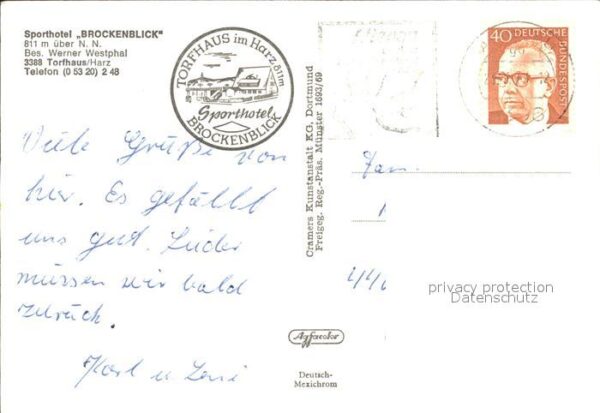 Sporthotel „BROCKENBLICK"
811 m über N. N.
Bes. Werner Westphal
3388 Torfhaus/Harz
Telefon (0 53 20) 2 48
TORFHAUS im Harz 811m
Sporthotel
BROCKENBLICK
40
DEUTSCHE BUNDESPOST
Viele Grüße von
hier. Es gefällt
uns gut. Leider
müssen wir bald
zurück.
Karl u. Leni
Cramers Kunstanstalt KG, Dortmund
Freigeg. Reg.-Präs. Münster 1693/69
Fam.
privacy protection
Datenschutz
Agfacolor
Deutsch-
Mexichrom